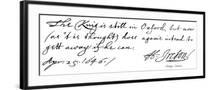 The King is still in Oxford, but now
(as 't is thought) hose agane intend to
gett away if he can.
Apr: 25: 1646 /
H: Ireton